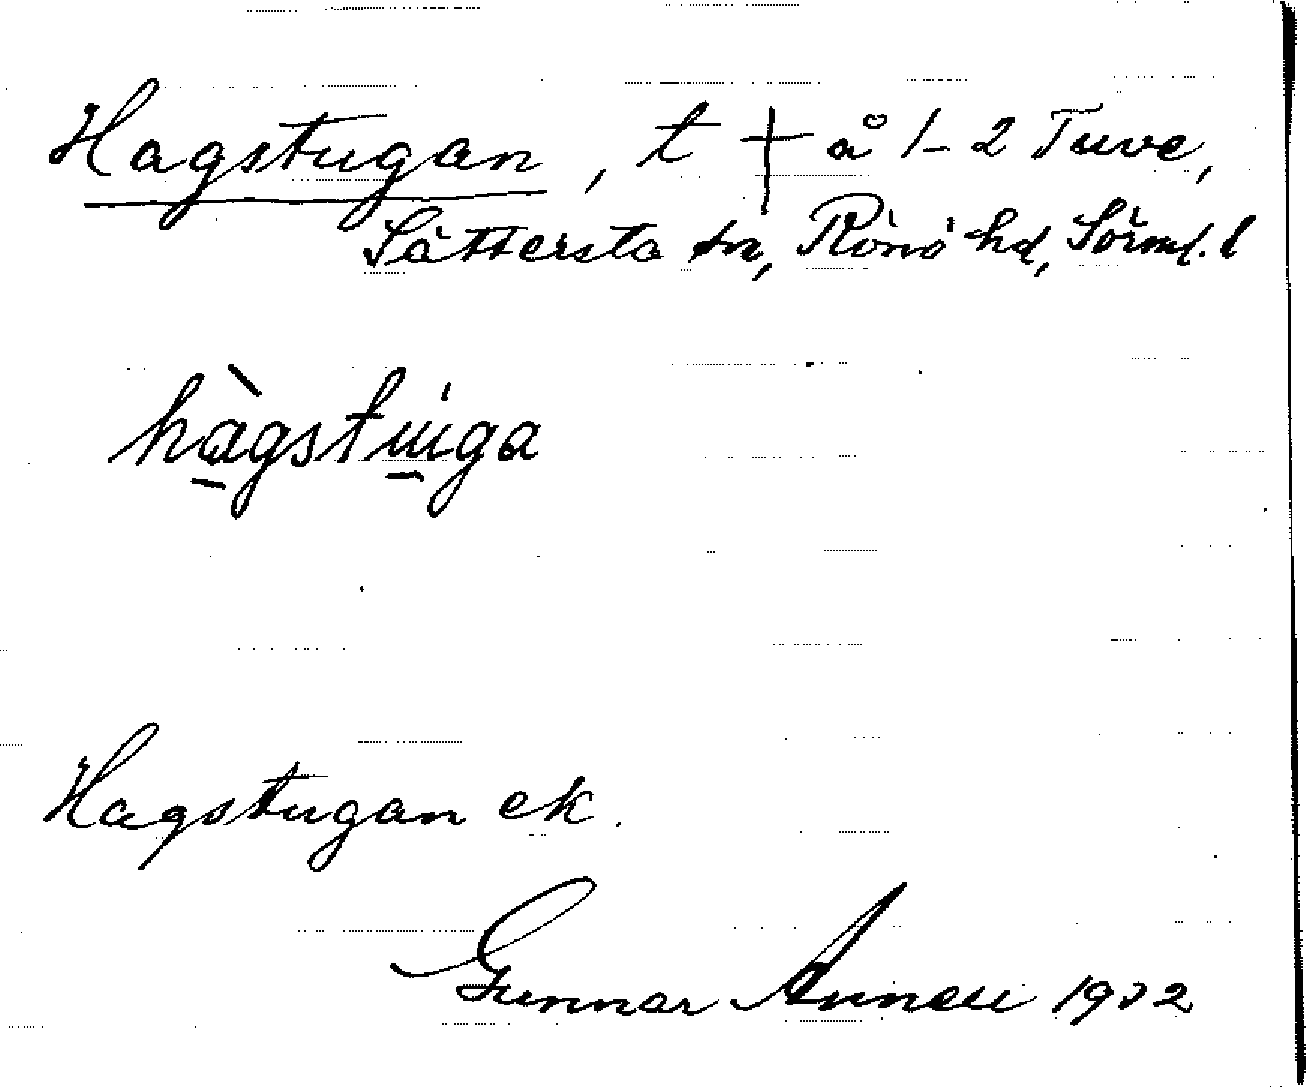 Hagstugan, t † å 1-2 Tuve,
Sättersta sn, Rönö hd, Sörml. l
hàgstuga
Hagstugan ek.
Gunnar Annell 1932